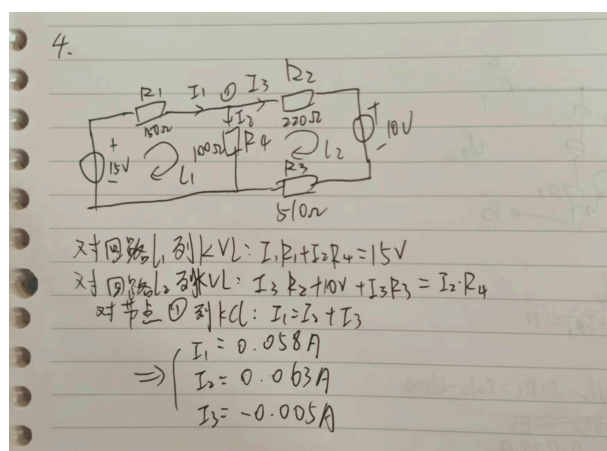 4.
R1 I1 ① I3 R2
150Ω I2 220Ω
+ 15V - L1 100Ω R4 L2 + 10V -
R3
510Ω
对回路L1列KVL: I1R1+I2R4=15V
对回路L2列KVL: I3R2+10V+I3R3=I2·R4
对节点①列KCL: I1=I2+I3
I1=0.058A
⇒ I2=0.063A
I3=-0.005A